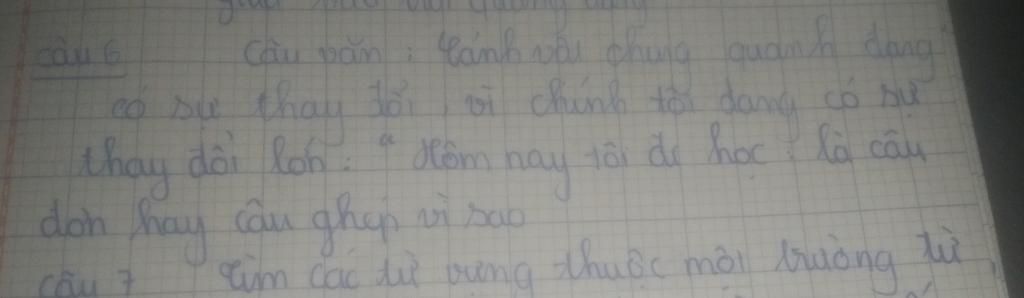 câu 6 Câu văn : Cảnh vật chung quanh đang
có sự thay đổi, vì chính tôi đang có sự
thay đổi lớn : " Hôm nay tôi đi học : là câu
đơn hay câu ghép vì sao
câu 7 tìm các từ vựng thuộc môi trường từ